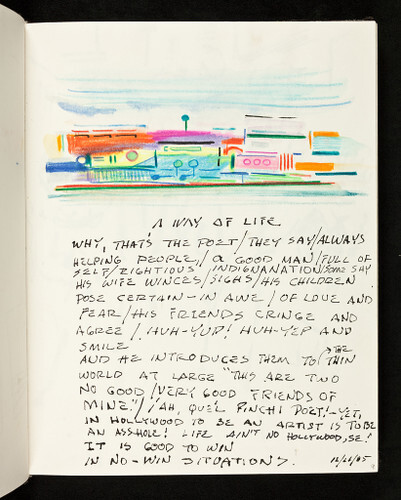 A WAY OF LIFE
WHY, THAT'S THE POET/THEY SAY/ALWAYS
HELPING PEOPLE,/A GOOD MAN/FULL OF
SELF/RIGHTIOUS INDIGNANATION/SOME SAY
HIS WIFE WINCES/SIGHS/HIS CHILDREN
POSE CERTAIN-IN AWE/OF LOVE AND
FEAR/HIS FRIENDS CRINGE AND
AGREE/. HUH-YUP! HUH-YEP AND
SMILE
AND HE INTRODUCES THEM TO/THE THIN
WORLD AT LARGE "THIS ARE TWO
NO GOOD/VERY GOOD FRIENDS OF
MINE"/¡AH, QUE'L PINCHI POET!-YET,
IN HOLLYWOOD TO BE AN ARTIST IS TO BE
AN ASSHOLE! LIFE AIN'T NO HOLLYWOOD, SE!
IT IS GOOD TO WIN
IN NO-WIN SITUATIONS.